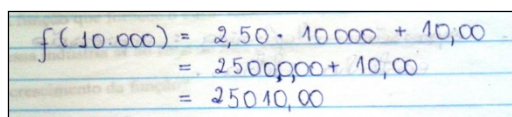 f(10.000) = 2,50 · 10000 + 10,00
= 25000,00 + 10,00
= 25010,00